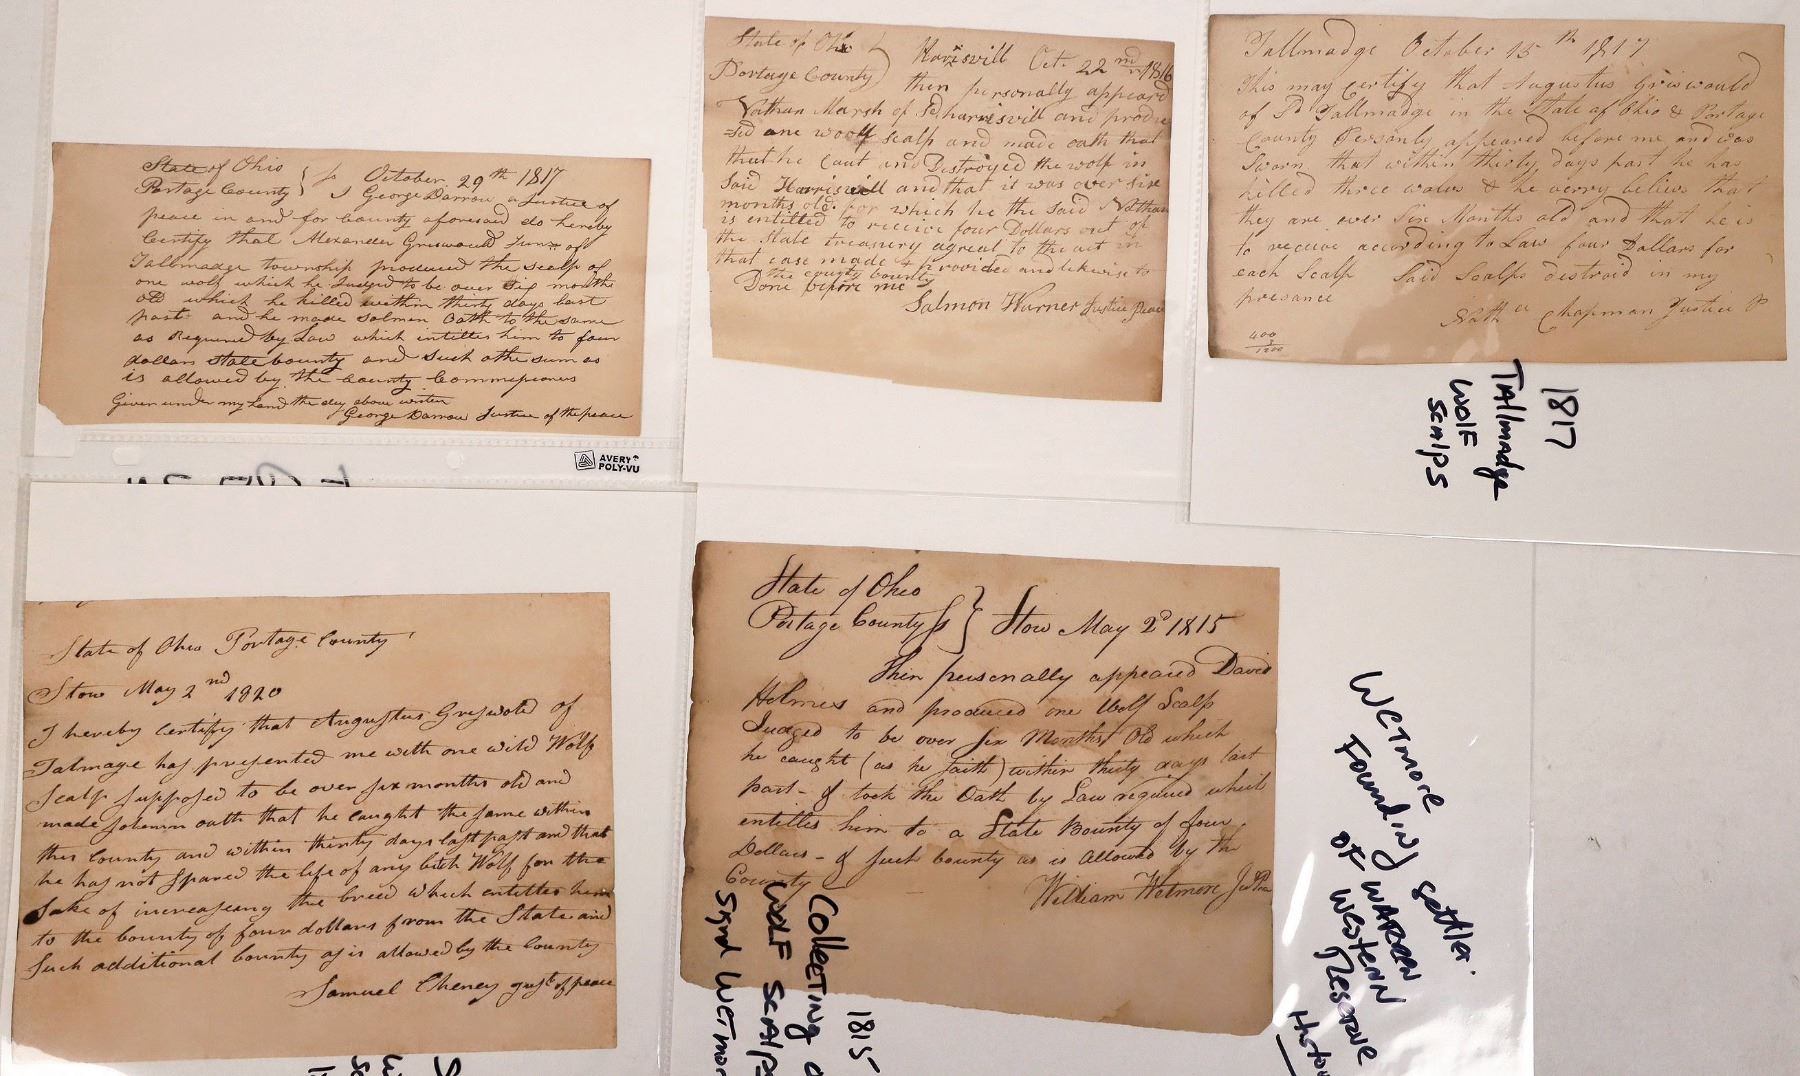 State of Ohio
Portage County } ss October 29th 1817
I George Darrow a Justice of
peace in and for County aforesaid do hereby
Certify that Alexander Griswould Junr of
Tallmadge township produced the scalp of
one wolf which he Judged to be over Six months
old which he killed within thirty days last
past and he made Solmen Oath to the same
as Required by Law which intitles him to four
dollars state bounty and such othe sum as
is allowed by the County Commissioners
Given under my hand the day above writen
George Darrow Justice of the peace
AVERY
POLY-VU
State of Ohio
Portage County) Harisvill Oct. 22nd 1816
then personally appeard
Nathan Marsh of Sd harrisvill and produ
=sed one woolf scalp and made oath that
that he Caut and Destroyed the wolf in
Said Harrisvill and that it was over six
months old. for which he the said Nathan
is entitled to receive four Dollars out of
the State treasurey agreal to the act in
that case made & provided and likewise to
the county bounty
Done before me
Salmon Warner Justice Peace
Tallmadge October 15th 1817
This may Certify that Augustus Griswould
of Sd Tallmadge in the State of Ohio & Portage
County Personly appeared before me and was
Sworn that within thirty days past he has
killed three wolves & he verry believs that
they are over Six Months old and that he is
to receive according to Law four Dollars for
each Scalp Said Scalps destroid in my
presance
Nathll Chapman Justice P
400
3
1200
1817
Tallmadge
WOLF
SCALPS
State of Ohio Portage County
Stow May 2nd 1820
I hereby certify that Augustus Griswold of
Talmage has presented me with one wild Wolf
Scalp supposed to be over six months old and
made solemn oath that he caught the same within
this County and within thirty days last past and that
he has not Spared the life of any bitch Wolf for the
Sake of increaseing the breed which entitles him
to the bounty of four dollars from the State and
Such additional bounty as is allowed by the County
Samuel Cheney Just of peace
State of Ohio
Portage County Ss } Stow May 2d 1815
Then personally appeared David
Holmes and produced one Wolf Scalp
Judged to be over Six Months Old which
he caught (as he saith) within thirty days last
past - & took the Oath by Law required which
entitles him to a State Bounty of four
Dollars - & such bounty as is Allowed by the
County
William Wetmore Jus Pea
1815
Collecting
WOLF SCALPS
Signd Wetmor
Wetmore
Founding settler
of WARREN
Western
Reserve